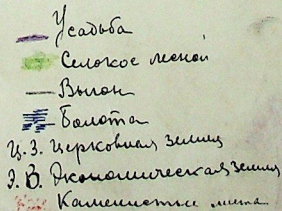 Усадьба
Селокос лесной
Выгон
Болота
Ц. З. Церковная земля
Э. З. Экономическая земля
Каменистые места